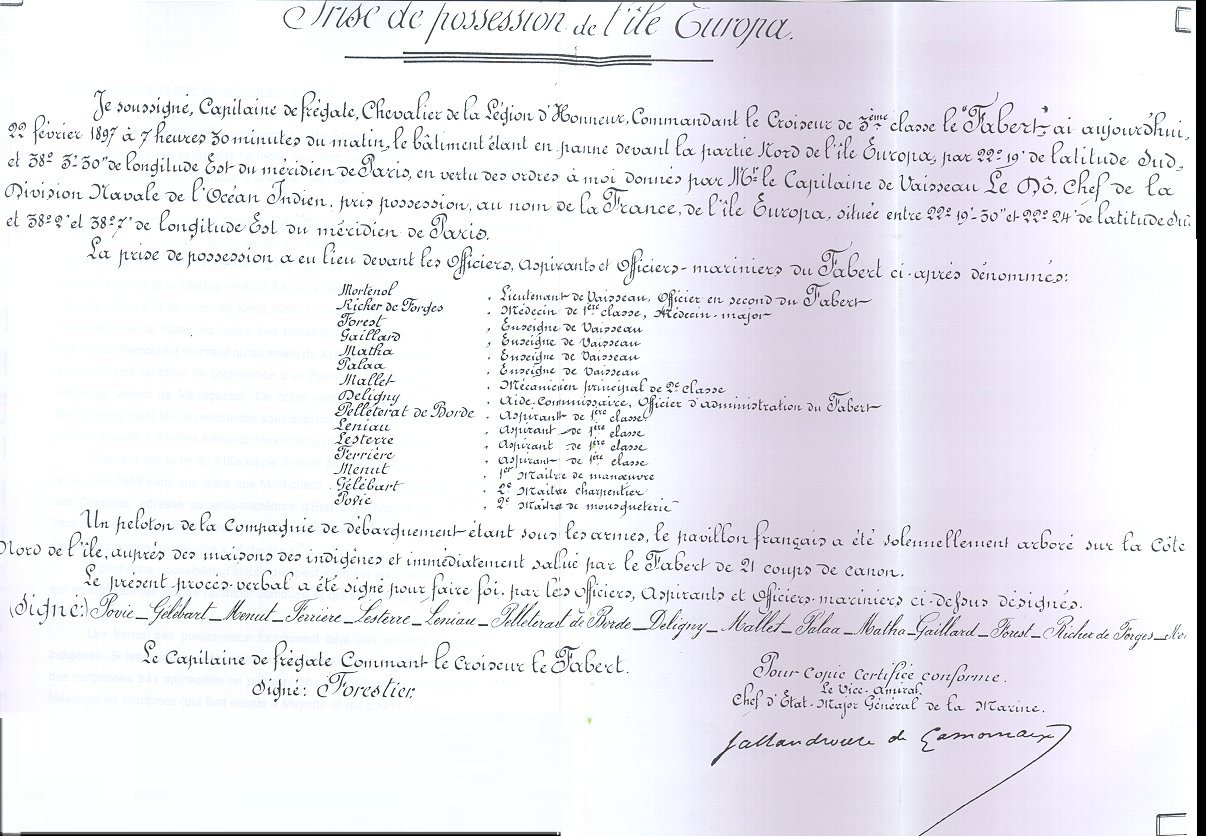 Prise de possession de l'île Europa.
Je soussigné, Capitaine de frégate, Chevalier de la Légion d'Honneur, Commandant le Croiseur de 3ème classe le "Fabert" ai aujourd'hui,
22 février 1897 à 7 heures 30 minutes du matin, le bâtiment étant en panne devant la partie Nord de l'île Europa, par 22º 19' de latitude Sud
et 38º 3' 30" de longitude Est du méridien de Paris, en vertu des ordres à moi donnés par Mr. le Capitaine de Vaisseau Le Dô, Chef de la
Division Navale de l'Océan Indien, pris possession, au nom de la France, de l'île Europa, située entre 22º 19'-30" et 22º 24' de latitude Su
et 38º 2' et 38º 7' de longitude Est du méridien de Paris.
La prise de possession a eu lieu devant les Officiers, Aspirants et Officiers-mariniers du Fabert ci-après dénommés:
Morténol, Lieutenant de Vaisseau, Officier en second du Fabert
Richer de Forges, Médecin de 1ère classe, Médecin-major
Forest, Enseigne de Vaisseau
Gaillard, Enseigne de Vaisseau
Matha, Enseigne de Vaisseau
Palaa, Enseigne de Vaisseau
Mallet, Mécanicien principal de 2e classe
Deligny, Aide-Commissaire, Officier d'administration du Fabert
Pelleterat de Borde, Aspirant de 1ère classe.
Léniau, Aspirant de 1ère classe
Lesterre, Aspirant de 1ère classe
Ferrière, Aspirant de 1ère classe
Menut, 1er Maître de manœuvre
Gélébart, 2e Maître charpentier
Povie, 2e Maître de mousqueterie
Un peloton de la Compagnie de débarquement étant sous les armes, le pavillon français a été solennellement arboré sur la Côte
Nord de l'île, auprès des maisons des indigènes et immédiatement salué par le Fabert de 21 coups de canon.
Le présent procès-verbal a été signé pour faire foi, par les Officiers, Aspirants et Officiers-mariniers ci-dessus désignés.
(Signé:) Povie_Gélébart_Menut_Ferrière_Lesterre_Léniau_Pelleterat de Borde_Deligny_Mallet_Palaa_Matha_Gaillard_Forest_Richer de Forges_Mo
Le Capitaine de frégate Commant le Croiseur le Fabert.
Signé: Forestier.
Pour copie certifiée conforme.
Le Vice-Amiral
Chef d'Etat-Major Général de la Marine.